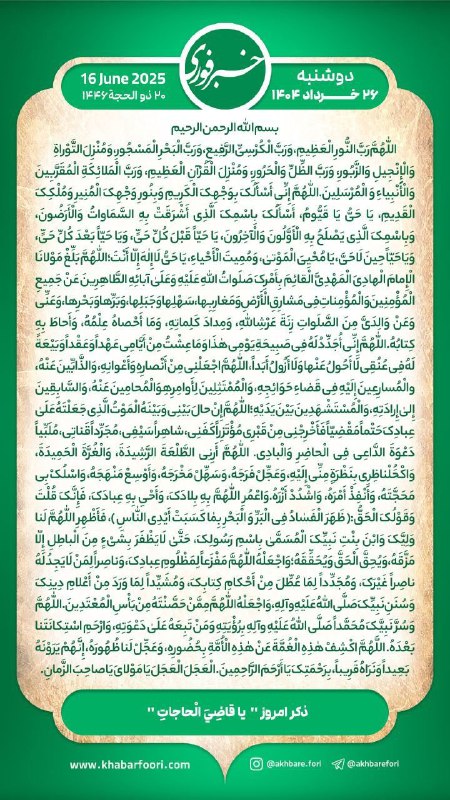 خبرفوری
دوشنبه
۲۶ خـــرداد ۱۴۰۴
16 June 2025
۲۰ ذو الحجة ۱۴۴۶
بسم الله الرحمن الرحیم
اللَّهُمَّ رَبَّ النُّورِ الْعَظِیمِ، وَرَبَّ الْکُرْسِیِّ الرَّفِیعِ، وَرَبَّ الْبَحْرِ الْمَسْجُورِ، وَمُنْزِلَ التَّوْراةِ
وَالْإِنْجِیلِ وَالزَّبُورِ، وَرَبَّ الظِّلِّ وَالْحَرُورِ، وَمُنْزِلَ الْقُرْآنِ الْعَظِیمِ، وَرَبَّ الْمَلائِکَةِ الْمُقَرَّبِینَ
وَالْأَنْبِیاءِ وَالْمُرْسَلِینَ. اللَّهُمَّ إِنِّی أَسْأَلُکَ بِوَجْهِکَ الْکَرِیمِ وَبِنُورِ وَجْهِکَ الْمُنِیرِ وَمُلْکِکَ
الْقَدِیمِ، یَا حَیُّ یَا قَیُّومُ، أَسْأَلُکَ بِاسْمِکَ الَّذِی أَشْرَقَتْ بِهِ السَّمَاوَاتُ وَالْأَرَضُونَ،
وَبِاسْمِکَ الَّذِی یَصْلَحُ بِهِ الْأَوَّلُونَ وَالْآخِرُونَ، یَا حَیّاً قَبْلَ کُلِّ حَیٍّ، وَیَا حَیّاً بَعْدَ کُلِّ حَیٍّ،
وَیَا حَیّاً حِینَ لَا حَیَّ، یَا مُحْیِیَ الْمَوْتیٰ، وَمُمِیتَ الْأَحْیاءِ، یَا حَیُّ لَا إِلٰهَ إِلّا أَنْتَ؛ اللَّهُمَّ بَلِّغْ مَوْلانَا
الْإِمامَ الْهادِیَ الْمَهْدِیَّ الْقائِمَ بِأَمْرِکَ صَلَواتُ اللهِ عَلَیْهِ وَعَلَیٰ آبائِهِ الطَّاهِرِینَ عَنْ جَمِیعِ
الْمُؤْمِنِینَ وَالْمُؤْمِناتِ فِی مَشارِقِ الْأَرْضِ وَمَغارِبِها، سَهْلِها وَجَبَلِها، وَبَرِّها وَبَحْرِها، وَعَنِّی
وَعَنْ والِدَیَّ مِنَ الصَّلَواتِ زِنَةَ عَرْشِ اللهِ، وَمِدادَ کَلِماتِهِ، وَمَا أَحْصاهُ عِلْمُهُ، وَأَحاطَ بِهِ
کِتابُهُ. اللَّهُمَّ إِنِّی أُجَدِّدُ لَهُ فِی صَبِیحَةِ یَوْمِی هٰذَا وَمَا عِشْتُ مِنْ أَیَّامِی عَهْداً وَعَقْداً وَبَیْعَةً
لَهُ فِی عُنُقِی لَا أَحُولُ عَنْها وَلَا أَزُولُ أَبَداً. اللَّهُمَّ اجْعَلْنِی مِنْ أَنْصارِهِ وَأَعْوانِهِ، وَالذَّابِّینَ عَنْهُ،
وَالْمُسارِعِینَ إِلَیْهِ فِی قَضاءِ حَوَائِجِهِ، وَالْمُمْتَثِلِینَ لِأَوامِرِهِ وَالْمُحامِینَ عَنْهُ، وَالسَّابِقِینَ
إِلیٰ إِرادَتِهِ، وَالْمُسْتَشْهَدِینَ بَیْنَ یَدَیْهِ؛ اللَّهُمَّ إِنْ حالَ بَیْنِی وَبَیْنَهُ الْمَوْتُ الَّذِی جَعَلْتَهُ عَلَیٰ
عِبادِکَ حَتْماً مَقْضِیّاً فَأَخْرِجْنِی مِنْ قَبْرِی مُؤْتَزِراً کَفَنِی، شاهِراً سَیْفِی، مُجَرِّداً قَناتِی، مُلَبِّیاً
دَعْوَةَ الدَّاعِی فِی الْحاضِرِ وَالْبادِی. اللَّهُمَّ أَرِنِی الطَّلْعَةَ الرَّشِیدَةَ، وَالْغُرَّةَ الْحَمِیدَةَ،
وَاکْحُلْ ناظِرِی بِنَظْرَةٍ مِنِّی إِلَیْهِ، وَعَجِّلْ فَرَجَهُ، وَسَهِّلْ مَخْرَجَهُ، وَأَوْسِعْ مَنْهَجَهُ، وَاسْلُکْ بِی
مَحَجَّتَهُ، وَأَنْفِذْ أَمْرَهُ، وَاشْدُدْ أَزْرَهُ. وَاعْمُرِ اللَّهُمَّ بِهِ بِلادَکَ، وَأَحْیِ بِهِ عِبادَکَ، فَإِنَّکَ قُلْتَ
وَقَوْلُکَ الْحَقُّ: ﴿ظَهَرَ الْفَسادُ فِی الْبَرِّ وَالْبَحْرِ بِمَا کَسَبَتْ أَیْدِی النَّاسِ﴾، فَأَظْهِرِ اللَّهُمَّ لَنا
وَلِیَّکَ وَابْنَ بِنْتِ نَبِیِّکَ الْمُسَمَّیٰ بِاسْمِ رَسُولِکَ، حَتَّیٰ لَا یَظْفَرَ بِشَیْءٍ مِنَ الْباطِلِ إِلّا
مَزَّقَهُ، وَیُحِقَّ الْحَقَّ وَیُحَقِّقَهُ؛ وَاجْعَلْهُ اللَّهُمَّ مَفْزَعاً لِمَظْلُومِ عِبادِکَ، وَناصِراً لِمَنْ لَا یَجِدُ لَهُ
ناصِراً غَیْرَکَ، وَمُجَدِّداً لِمَا عُطِّلَ مِنْ أَحْکامِ کِتابِکَ، وَمُشَیِّداً لِمَا وَرَدَ مِنْ أَعْلامِ دِینِکَ
وَسُنَنِ نَبِیِّکَ صَلَّی اللهُ عَلَیْهِ وَآلِهِ، وَاجْعَلْهُ اللَّهُمَّ مِمَّنْ حَصَّنْتَهُ مِنْ بَأْسِ الْمُعْتَدِینَ. اللَّهُمَّ
وَسُرَّ نَبِیَّکَ مُحَمَّداً صَلَّی اللهُ عَلَیْهِ وَآلِهِ بِرُؤْیَتِهِ وَمَنْ تَبِعَهُ عَلَیٰ دَعْوَتِهِ، وَارْحَمِ اسْتِکانَتَنا
بَعْدَهُ. اللَّهُمَّ اکْشِفْ هٰذِهِ الْغُمَّةَ عَنْ هٰذِهِ الْأُمَّةِ بِحُضُورِهِ، وَعَجِّلْ لَنا ظُهُورَهُ، إِنَّهُمْ یَرَوْنَهُ
بَعِیداً وَنَرَاهُ قَرِیباً، بِرَحْمَتِکَ یَا أَرْحَمَ الرَّاحِمِینَ. الْعَجَلَ الْعَجَلَ یَا مَوْلایَ یَا صاحِبَ الزَّمانِ.
ذکر امروز " یا قاضِیَ الْحاجات "
www.khabarfoori.com
@akhbare.fori
@akhbarefori